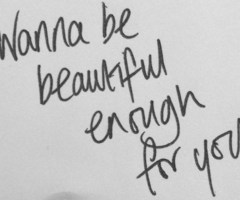 Wanna be
beautiful
enough
for you